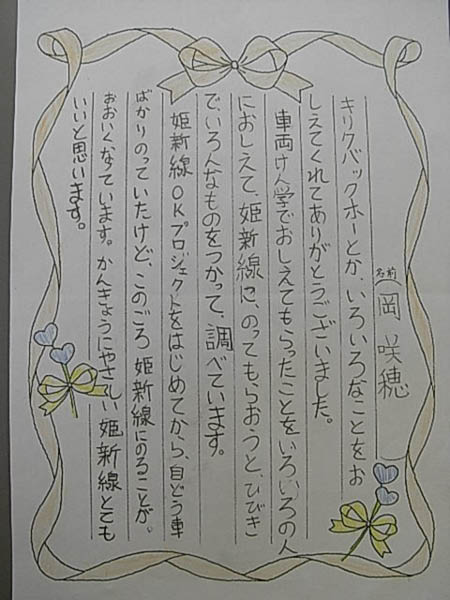 名前(岡 咲穂
キリクバックホーとか、いろいろなことをお
しえてくれてありがとうございました。
車両けん学でおしえてもらったことをいろいろの人
におしえて、姫新線に、のってもらおうと、ひびき
で、いろんなものをつかって、調べています。
姫新線OKプロジェクトをはじめてから、自どう車
ばかりのっていたけど、このごろ姫新線にのることが。
おおいくなっています。かんきょうにやさしい姫新線とても
いいと思います。